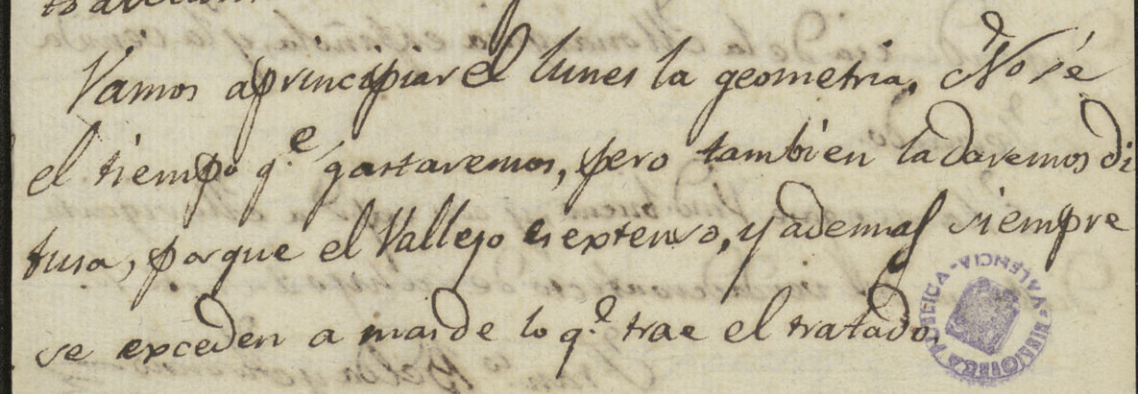 Vamos a principiar el lunes la geometria. No sé
el tiempo q.e gastaremos, pero tambien la daremos di
fusa, porque el Vallejo es extenso, y ademas siempre
se exceden a mas de lo q.e trae el tratado.
VALENCIA